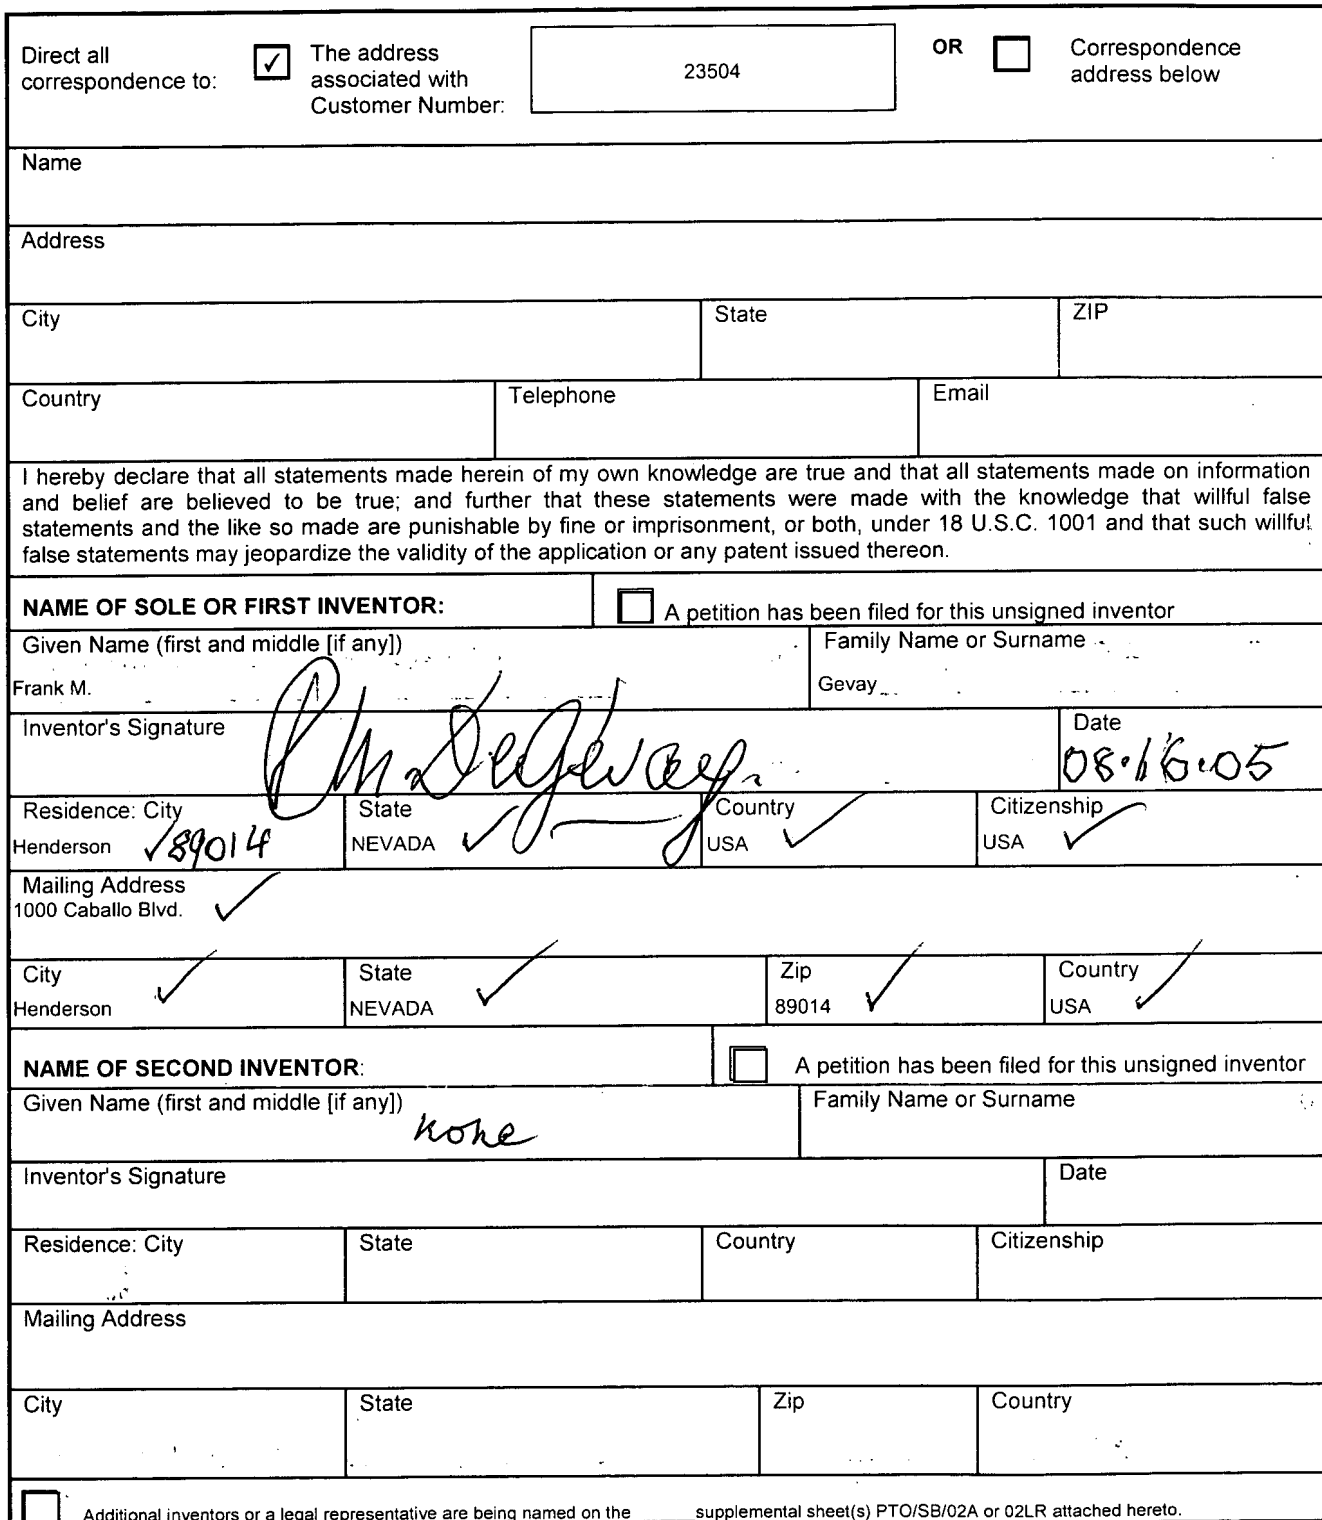 Direct all correspondence to: ✓ The address associated with Customer Number: 23504 OR Correspondence address below
Name
Address
City State ZIP
Country Telephone Email
I hereby declare that all statements made herein of my own knowledge are true and that all statements made on information
and belief are believed to be true; and further that these statements were made with the knowledge that willful false
statements and the like so made are punishable by fine or imprisonment, or both, under 18 U.S.C. 1001 and that such willful
false statements may jeopardize the validity of the application or any patent issued thereon.
NAME OF SOLE OR FIRST INVENTOR: A petition has been filed for this unsigned inventor
Given Name (first and middle [if any]) Family Name or Surname
Frank M. Gevay
Inventor's Signature Date
08.16.05
Residence: City State Country Citizenship
Henderson ✓89014 NEVADA ✓ USA ✓ USA ✓
Mailing Address
1000 Caballo Blvd. ✓
City State Zip Country
Henderson ✓ NEVADA ✓ 89014 ✓ USA ✓
NAME OF SECOND INVENTOR: A petition has been filed for this unsigned inventor
Given Name (first and middle [if any]) Family Name or Surname
none
Inventor's Signature Date
Residence: City State Country Citizenship
Mailing Address
City State Zip Country
Additional inventors or a legal representative are being named on the supplemental sheet(s) PTO/SB/02A or 02LR attached hereto.